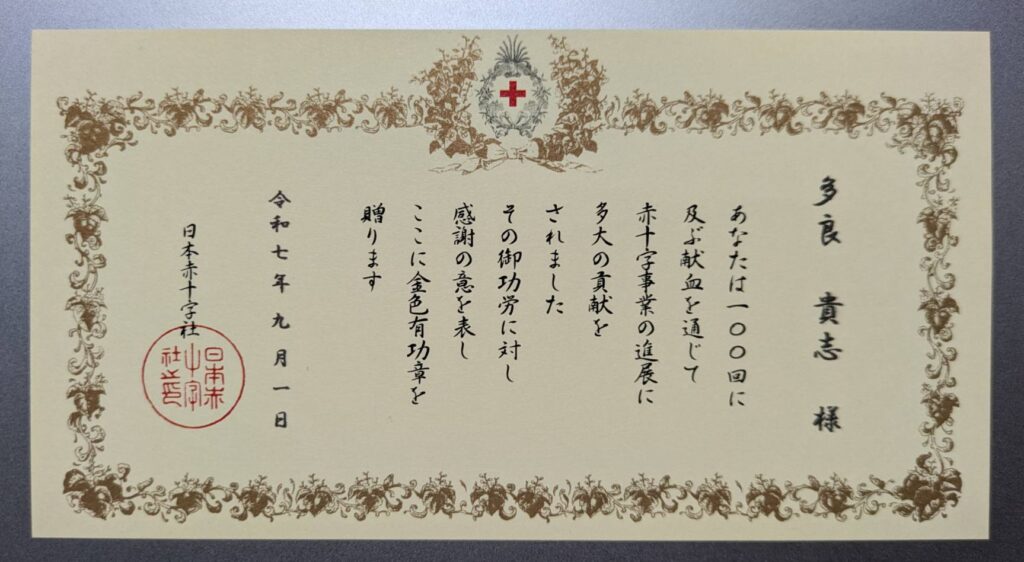 多良 貴志 様
あなたは一〇〇回に
及ぶ献血を通じて
赤十字事業の進展に
多大の貢献を
されました
その御功労に対し
感謝の意を表し
ここに金色有功章を
贈ります
令和七年九月一日
日本赤十字社
日本赤
十字
社之印